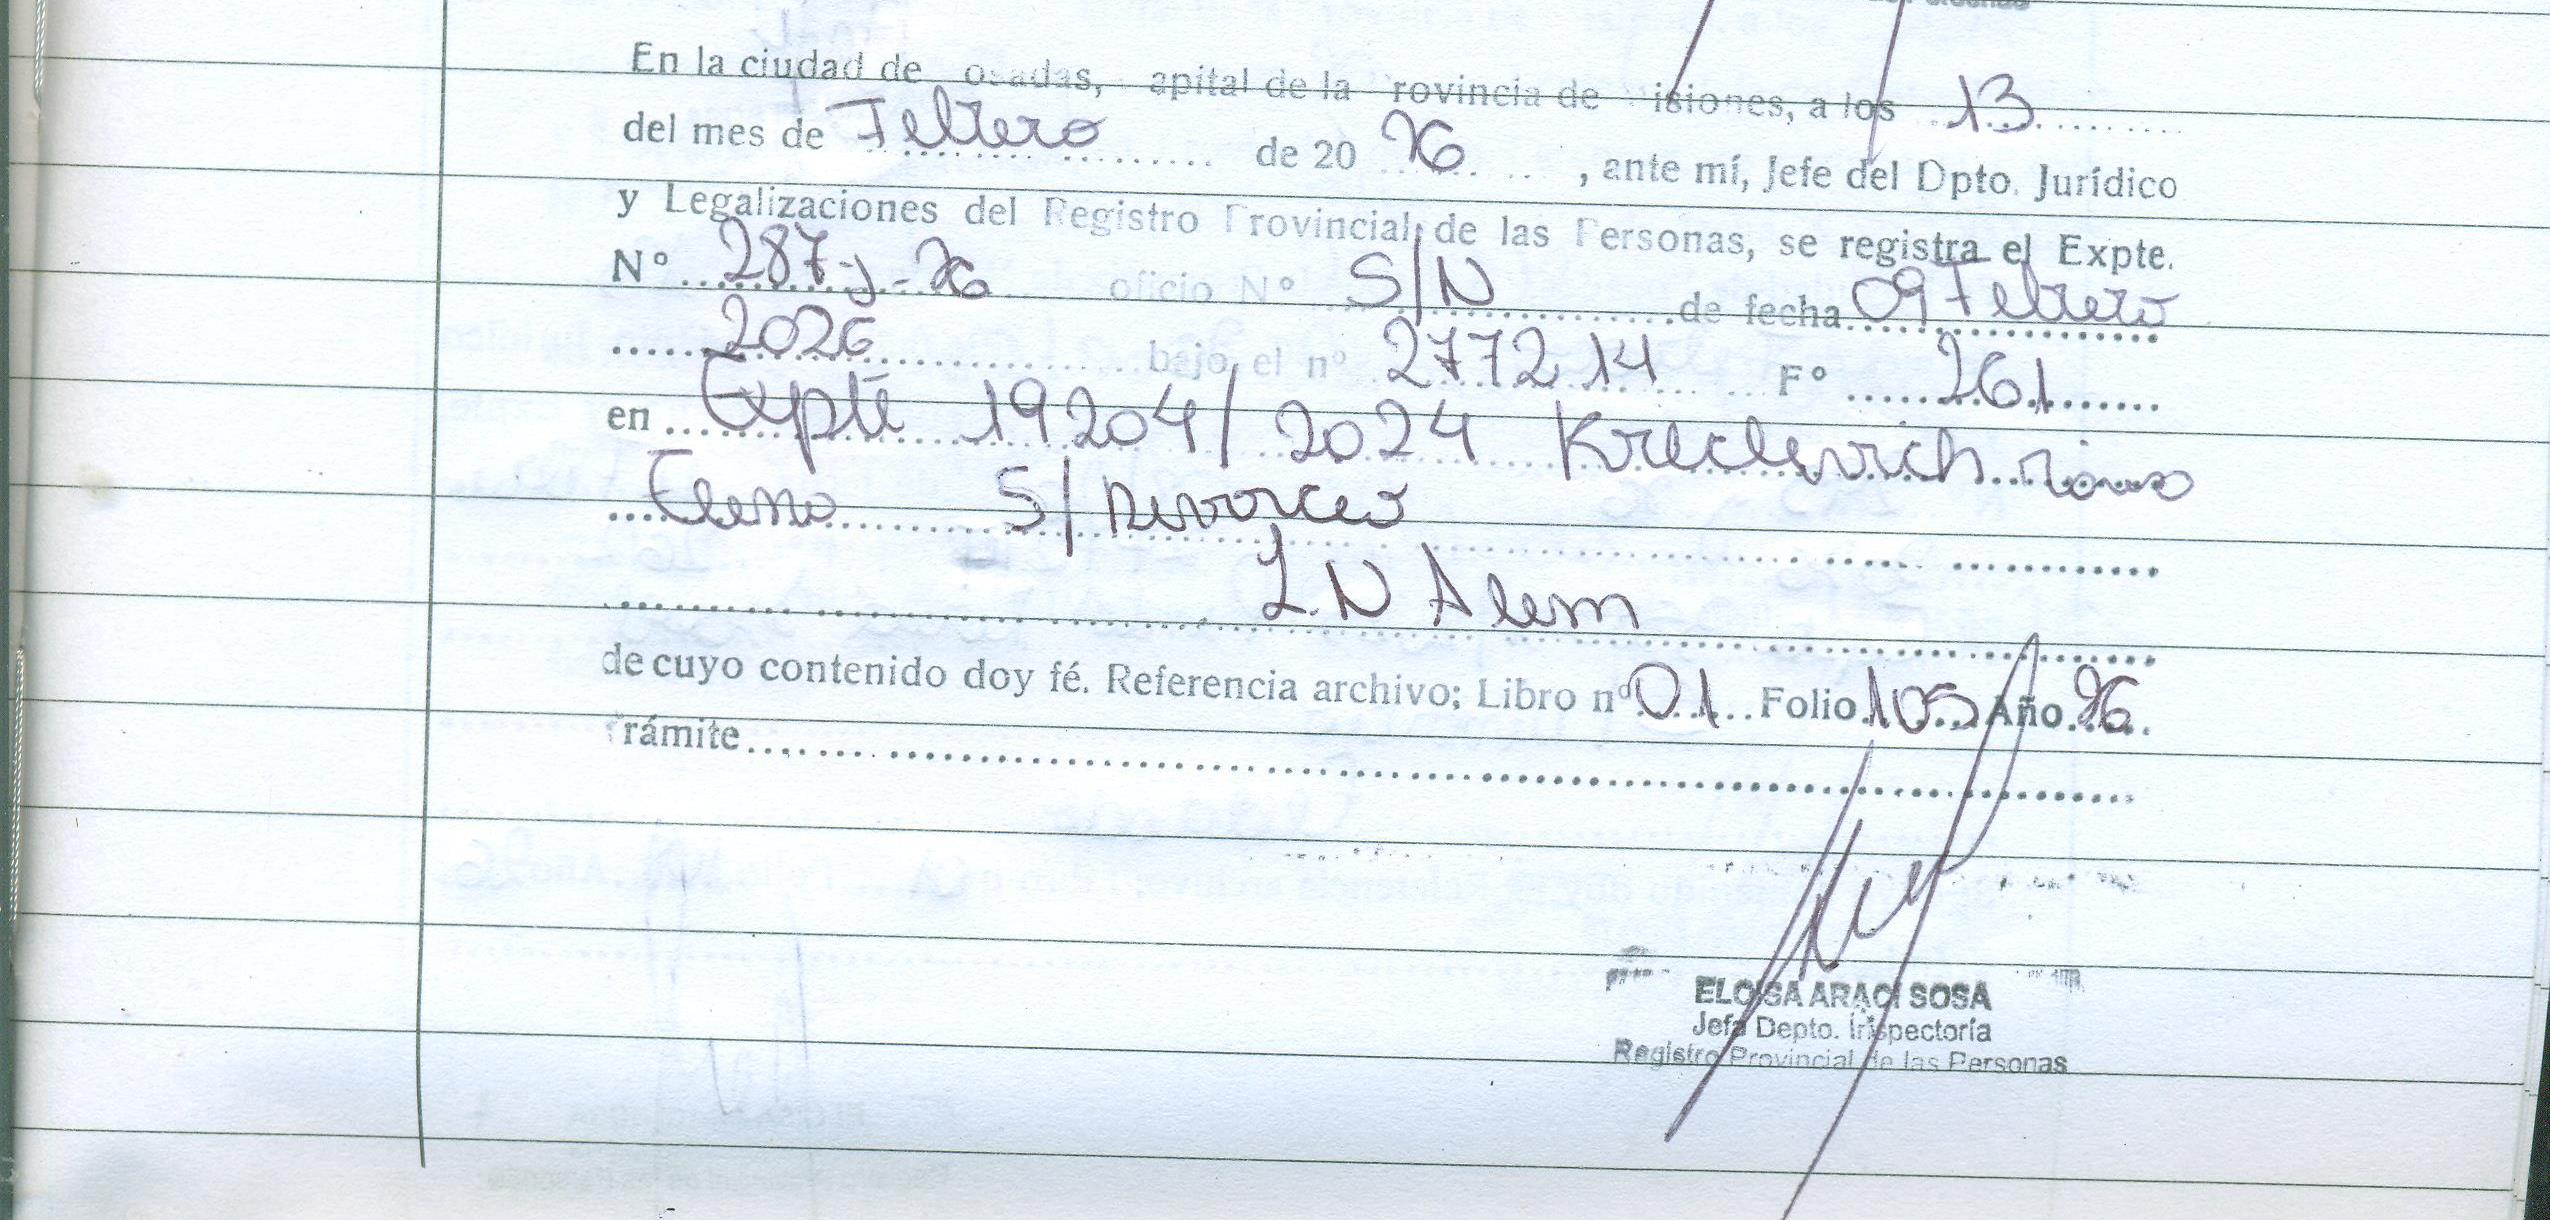 En la ciudad de osadas, apital de la rovincia de isiones, a los 13
del mes de Febrero de 20 26, ante mí, Jefe del Dpto. Jurídico
y Legalizaciones del Registro Provincial de las Personas, se registra el Expte.
Nº 287-J-26 oficio Nº S/N de fecha 09 Febrero
2026 bajo el nº 277214 Fº 261
en Expte 19204/2024 Kreclevich
Elena S/ Divorcio
L.N Alem
de cuyo contenido doy fé. Referencia archivo; Libro nº 01 Folio 105 Año 26
Trámite
ELOISA ARACI SOSA
Jefa Depto. Inspectoría
Registro Provincial de las Personas